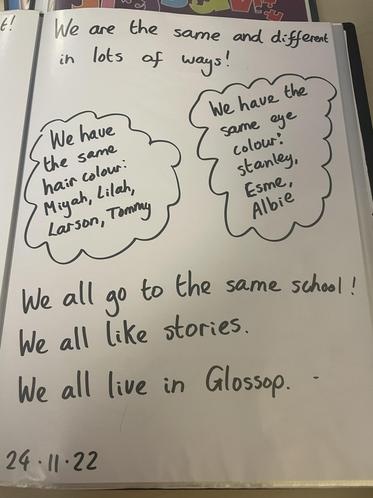 t!
We are the same and different
in lots of ways!
We have
the same
hair colour:
Miyah, Lilah,
Larson, Tommy
We have the
same eye
colour:
stanley,
Esme,
Albie
We all go to the same school!
We all like stories.
We all live in Glossop.
24.11.22